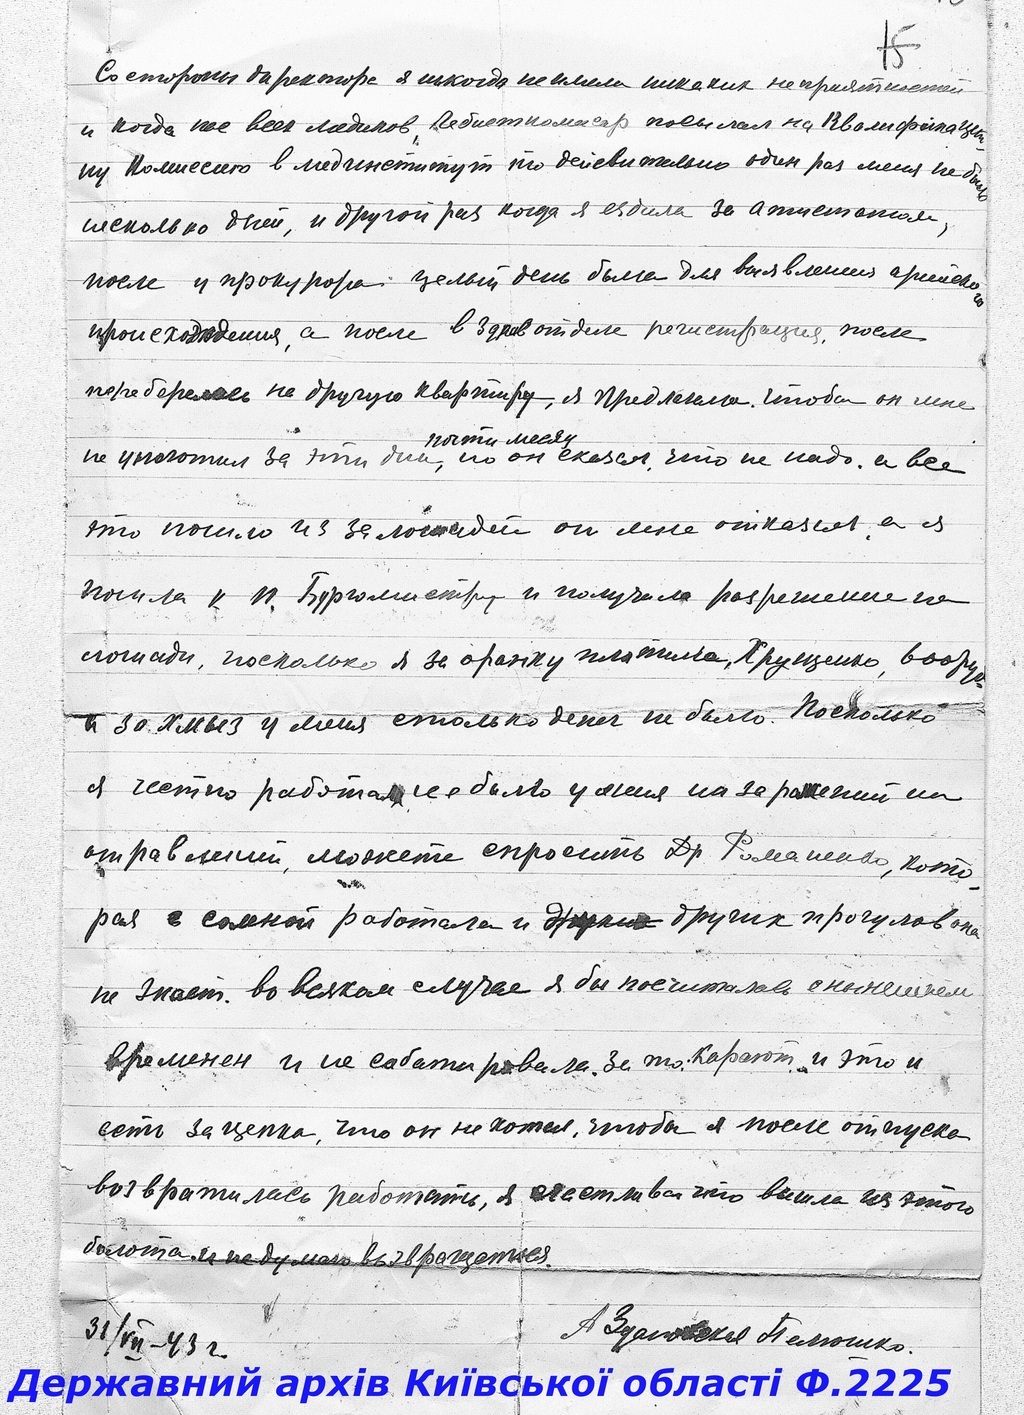 15
Со стороны директора я никогда не имела никаких неприятностей
и когда нас всех медиков, Гебитскомисар посылал на Квалификацион-
ну Комиссию в мединститут то действительно один раз меня не было
несколько дней, и другой раз когда я ездила за атистатом,
после у прокурора целый день была для выявления арийского
происхождения, а после в Здравотделе регистрация, после
перебералась на другую квартиру, я предлагала чтобы он мне
почти месяц
не уплотил за эти дни, но он сказал, что не надо. а все
это пошло из за лошадей он мне отказал, а я
пошла к П. Бургомистру и получила разрешение на
лошади, поскольку я за оранку платила, Хрущенко,
и за Хмыз у меня столько денег не было. Поскольку
я честно работала не было у меня ни заражений ни
отравлений, можете спросить Др Романенко, кото-
рая с со мной работала и других прогулов она
не знает. во всяком случае я бы посчиталась с нынешнем
временем и не сабатировала. За то Карают и это и
есть зацепка, что он не хотел, чтобы я после отпуска
возвратилась работать, я счастлива что вышла из этого
болота и не думаю возвращаться.
31/VII-43 г. А Здановская Пелюшко.
Державний архів Київської області Ф.2225